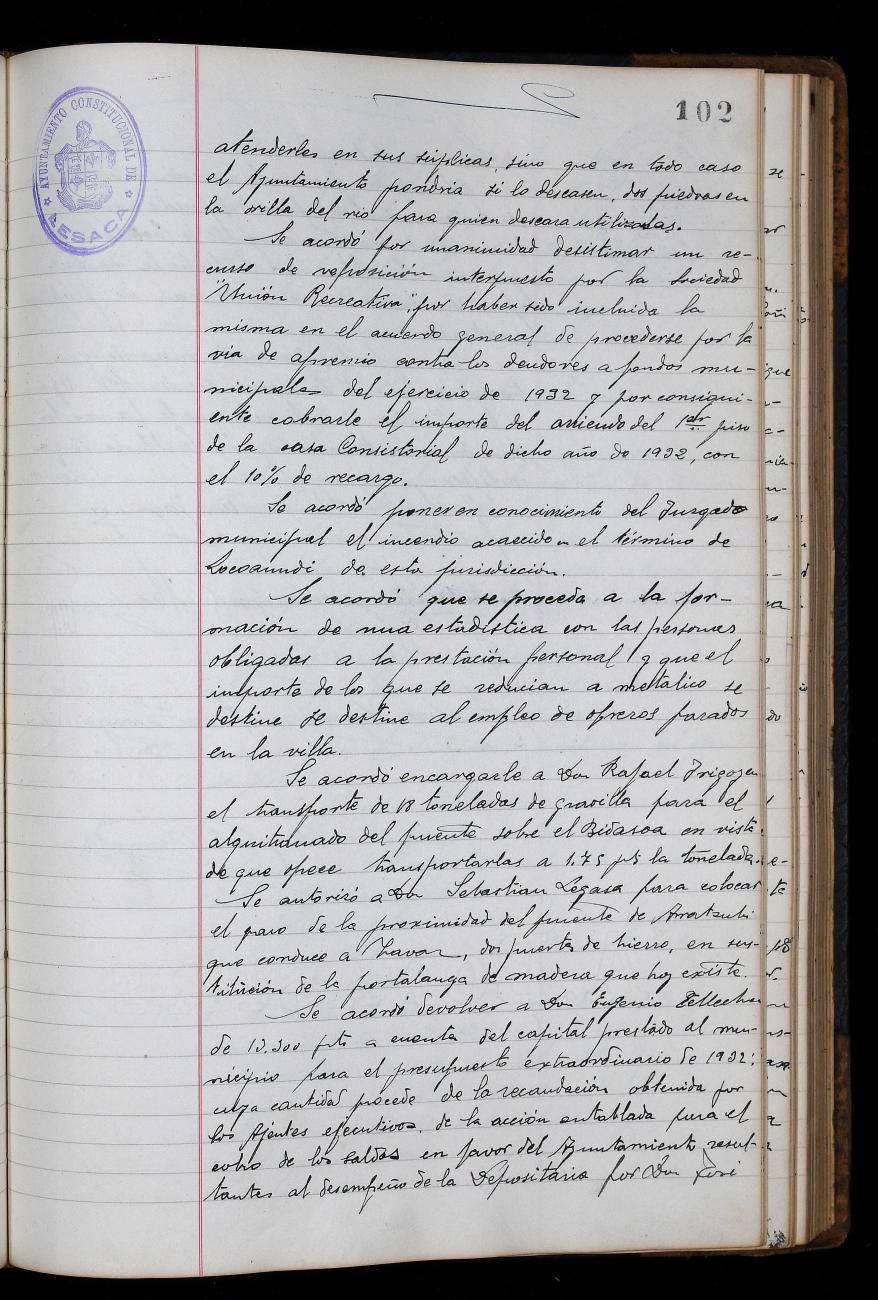 102
AYUNTAMIENTO CONSTITUCIONAL DE
LESACA
atenderles en sus súplicas, sino que en todo caso
el Ajuntamiento pondria si lo deseasen, dos piedras en
la orilla del rio para quien deseara utilizarlas.
Se acordó por unanimidad desistimar un re-
curso de reposición interpuesto por la Sociedad
"Unión Recreativa", por haber sido incluida la
misma en el acuerdo general de procederse por la
via de apremio contra los deudores a fondos mu-
nicipales del ejercicio de 1932 y por consigui-
ente cobrarle el importe del arriendo del 1er piso
de la casa Consistorial de dicho año de 1932, con
el 10% de recargo.
Se acordó poner en conocimiento del Juzgado
municipal el incendio acaecido en el término de
de esta jurisdicción.
Se acordó que se proceda a la for-
mación de una estadistica con las personas
obligadas a la prestación personal y que el
importe de los que se reducian a metalico se
destine se destine al empleo de obreros parados
en la villa.
Se acordó encargarle a Don Rafael Irigoyen
el transporte de 18 toneladas de gravilla para el
alquitranado del puente sobre el Bidasoa en vista
de que ofrece transportarlas a 1.75 pts la tonelada.
Se autorizó a Don Sebastian Legasa para colocar
el paso de la proximidad del puente de
que conduce a , dos puertas de hierro, en sus-
titución de la portalanga de madera que hoy existe.
Se acordó devolver a Don Eugenio Tellechea
de 13.300 pts a cuenta del capital prestado al mu-
nicipio para el presupuesto extraordinario de 1932;
cuya cantidad procede de la recaudación obtenida por
los Ajentes ejecutivos, de la acción entablada para el
cobro de los saldos en favor del Ajuntamiento, resul-
tantes al desempeño de la Depositaria por Don José